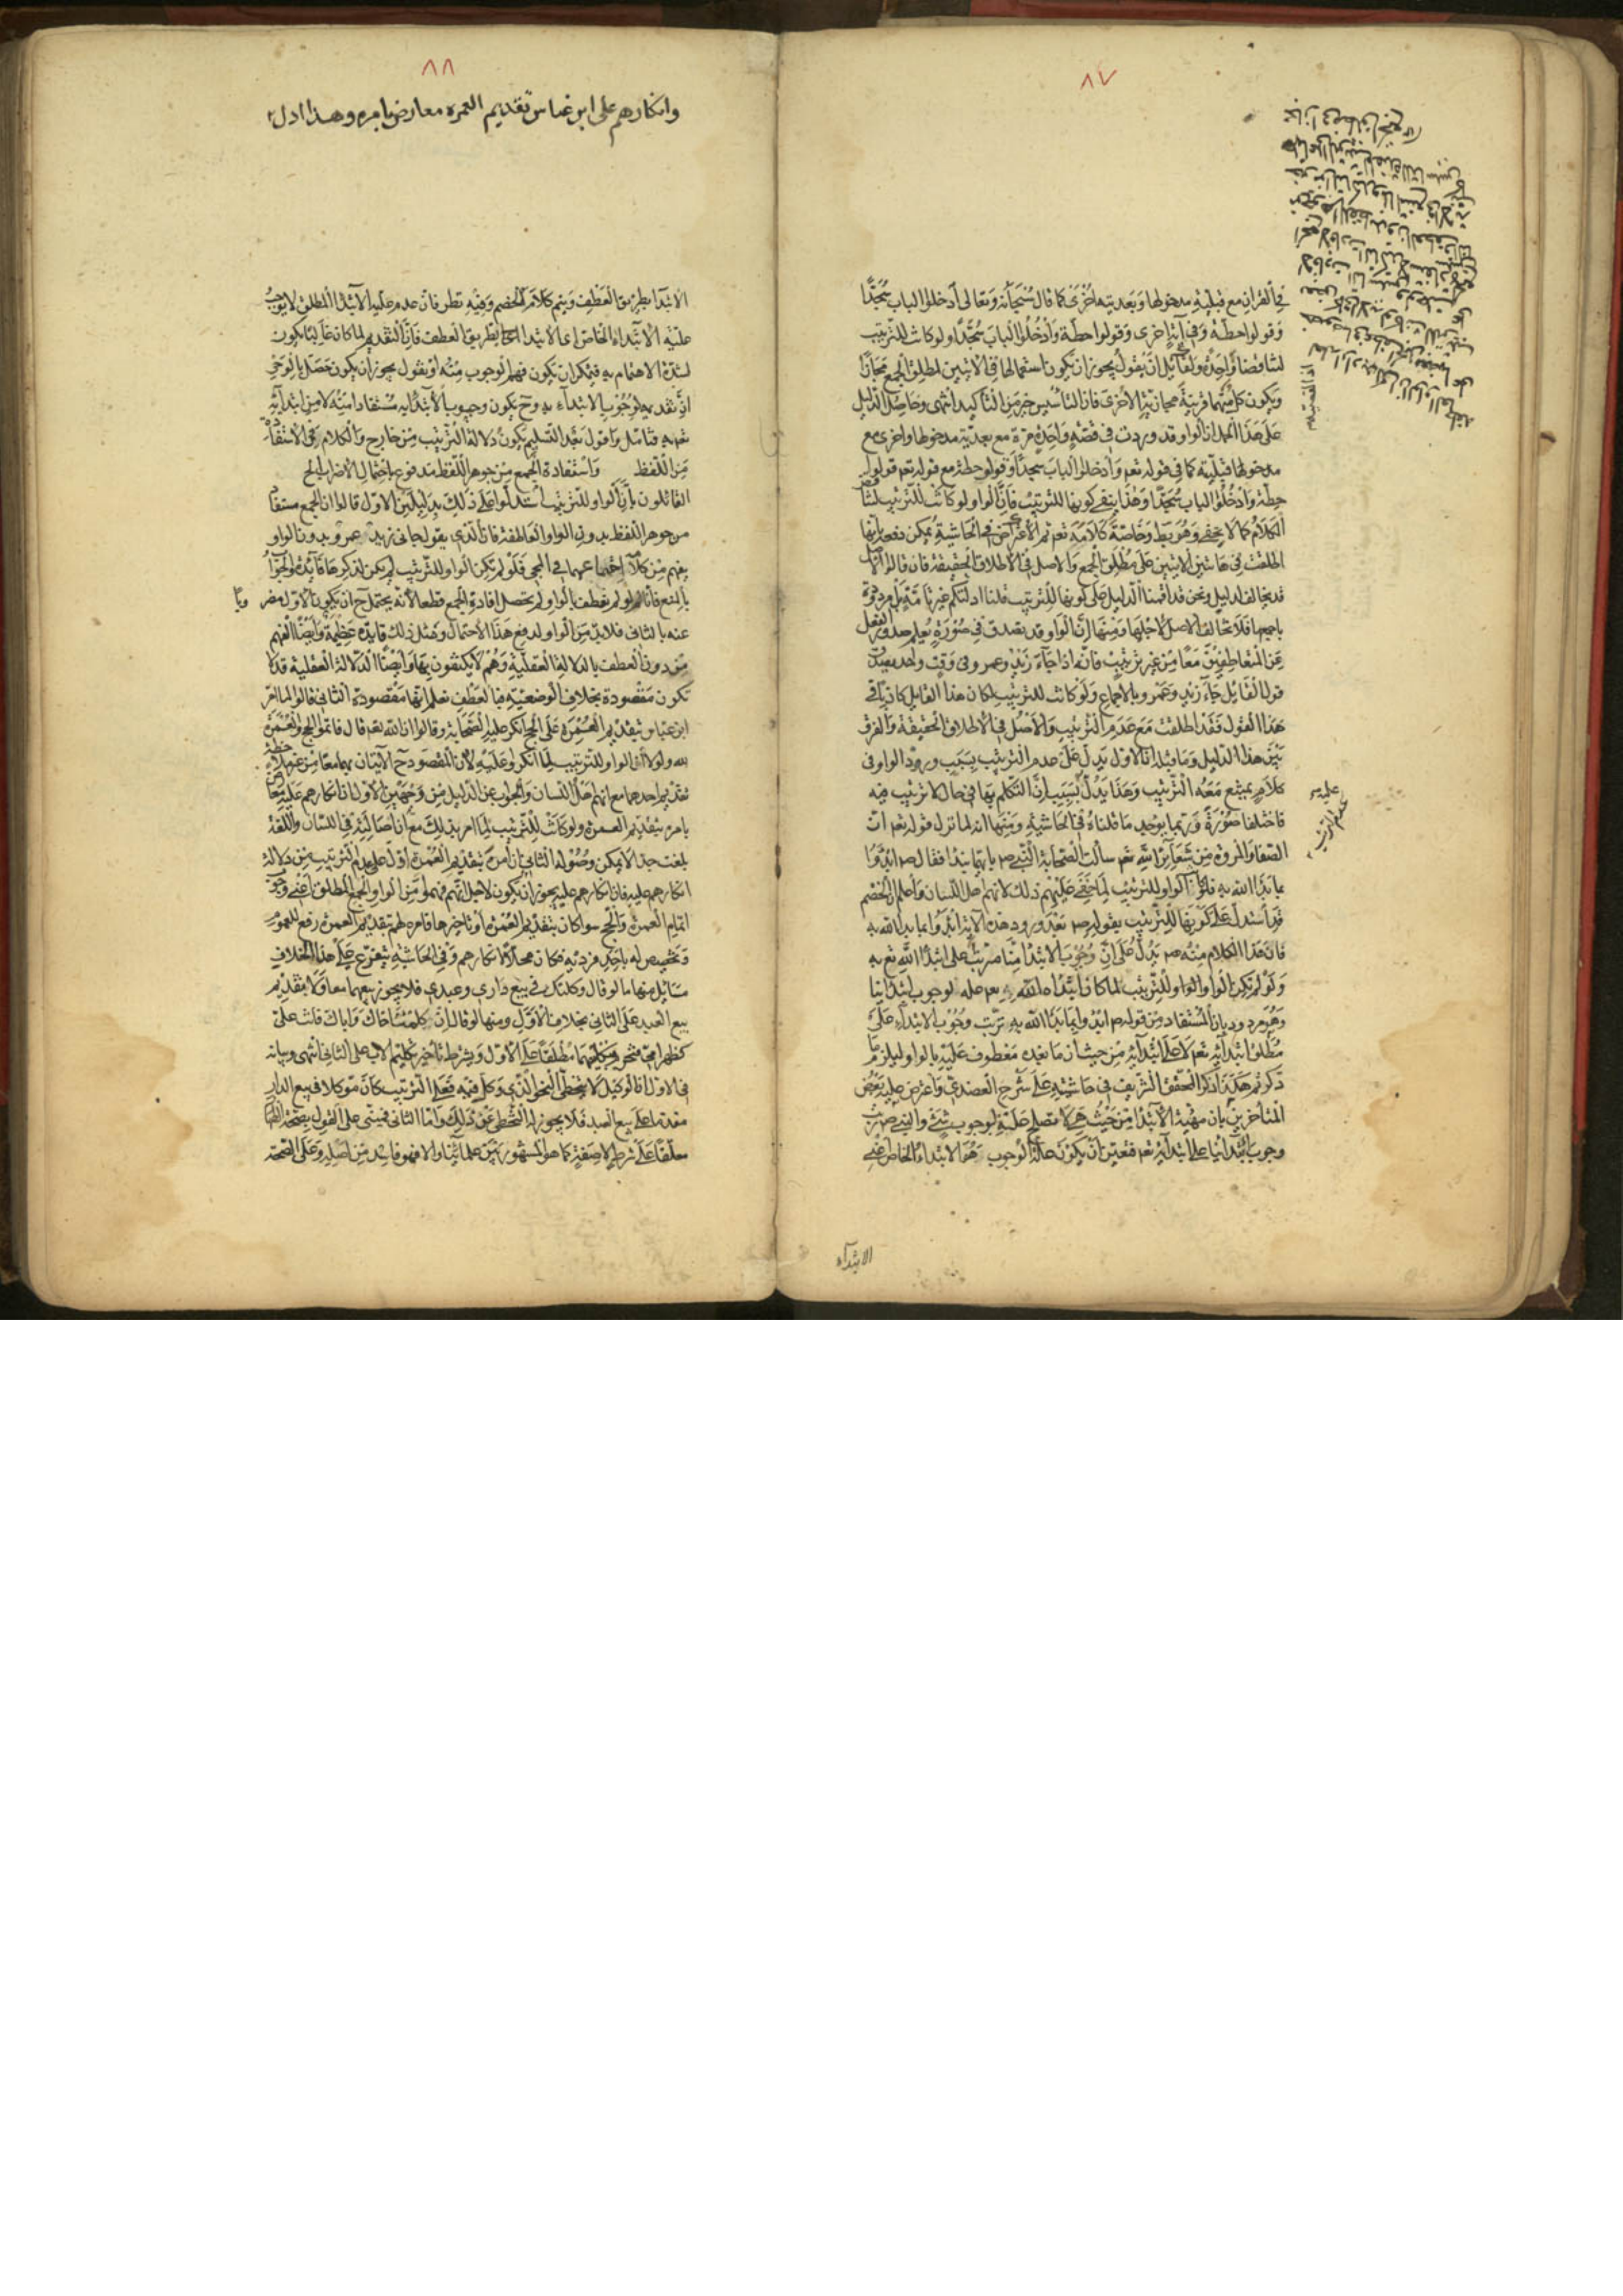 ٨٧
في القران مع قبلية مدخولها وبعديتها اخرى كما قال سبحانه وتعالى ادخلوا الباب سجدا
وقولوا حطة وفي آية اخرى وقولوا حطة وادخلوا الباب سجدا ولو كانت للترتيب
لتناقضا ولقائل ان يقول يجوز ان يكون استعمالها في الاثنين لمطلق الجمع مجازا
ويكون كل منهما قرينة مجازية الاخرى فان التأسيس خير من التأكيد انتهى وحاصل الدليل
على هذا انها ان الواو قد وردت في قصة واحدة مرة مع بعدية مدخولها واخرى مع
مدخولها قبلية كما في قوله تعم وادخلوا الباب سجدا وقولوا حطة مع قوله تعم قولوا
حطة وادخلوا الباب سجدا وهذا ينفي كونها للترتيب فان الواو لو كانت للترتيب
الكلام كما لا يخفى وهو خاصة كلامه تعم ثم الاعتراض في الحاشية يمكن دفعه بانها
اطلقت في هاتين الايتين على مطلق الجمع والاصل في الاطلاق الحقيقة فان قالوا الاصل
قد يخالف لدليل ونحن قد اقمنا الدليل على كونها للترتيب قلنا ادلتكم غير تامة بل مردودة
باجمعها فلا تخالف الاصل لاجلها ومنها ان الواو قد تصدق في صورة يعلم صدور الفعل
عن المتعاطفين معا من غير ترتيب فانه اذا جاء زيد وعمرو في وقت واحد يصدق
قول القائل جاء زيد وعمرو بالاجماع ولو كانت للترتيب لكان هذا القايل كاذبا في
هذا القول فقد اطلقت مع عدم الترتيب والاصل في الاطلاق الحقيقة والفرق
بين هذا الدليل وما قبله ان الاول يدل على عدم الترتيب بسبب ورود الواو في
كلام يمتنع معه الترتيب وهذا يدل بسبب ان التكلم بها في حال لا ترتيب فيه
فاختلفا صورة وربما يوجد ما قلناه في الحاشية ومنها انه لما نزل قوله تعم ان
الصفا والمروة من شعائر الله تعم سألت الصحابة النبي ص بايهما نبدا فقال ص ابدؤا
بما بدأ الله به فلو كان الواو للترتيب لما خفي عليهم ذلك لانهم اهل اللسان واعلم ان الخصم
قد استدل على كونها للترتيب بقوله ص بعد ورود هذه الاية ابدؤا بما بدأ الله به
فان هذا الكلام منه ص يدل على ان وجوب الابتداء منا مترتب على ابتداء الله تع به
ولو لم تكن الواو للترتيب لما كان ابتداء الله به علة لوجوب ابتدائنا
وهو مردود بان المستفاد من قوله ص ابدؤا بما بدأ الله به ترتب وجوب الابتداء على
مطلق ابتدائه تعم لا على ابتدائه من حيث ان ما بعده معطوف عليه بالواو ليلزم ما
ذكرتم هكذا ذكر المحقق الشريف في حاشيته على شرح العضدي واعترض عليه بعض
المتأخرين بان مهية الابتداء من حيث هي لا تصلح علة لوجوب شيء والنبي ص رتب
وجوب ابتدائنا على ابتدائه تعم فتعين ان يكون علة الوجوب هو الابتداء الخاص اعني
الابتداء
عليه
عدم الترتيب
٨٨
وانكارهم على ابن عباس تقديم العمره معارض بامره وهذا ادل
الابتداء بطريق العطف ويتم كلام الخصم وفيه نظر فان عدم علية الابتداء المطلق لا يوجب
علية الابتداء الخاص اعني الابتداء بطريق العطف فان التقديم لما كان غالبا يكون
لشدة الاهتمام به فيمكن ان يكون فهم الوجوب منه او نقول يجوز ان يكون حصل بالوحي
ان تقديمه لوجوب الابتداء به وح يكون وجوب الابتداء به مستفادا منه لا من ابتدائه
تعم به فتامل واقول بعد التسليم يكون دلالة الترتيب من خارج والكلام في الاستفادة
من اللفظ واستفادة الجمع من جوهر اللفظ مندفوع باحتمال الاضراب الخ
القائلون بان الواو للترتيب استدلوا على ذلك بدليلين الاول قالوا ان الجمع مستفاد
من جوهر اللفظ بدون الواو العاطفة فان الذي يقول جاءني زيد عمرو بدون الواو
يفهم من كلامه اجتماعهما في المجيء فلو لم تكن الواو للترتيب لم يكن لذكرها فائدة والجواب
بالمنع فانه لو لم يعطف بالواو لم يحصل افادة الجمع قطعا لانه يحتمل ح ان يكون الاول مضر وبا
عنه بالثاني فلابد من الواو لدفع هذا الاحتمال ومثل ذلك فايدة عظيمة وايضا الفهم
من دون العطف بالدلالة العقلية وهم لا يكتفون بها وايضا الدلالة العقلية قد لا
تكون مقصودة بخلاف الوضعية فبالعطف نعلم انها مقصودة الثاني قالوا لما امر
ابن عباس بتقديم العمرة على الحج انكر عليه الصحابة وقالوا ان الله تعم قال فاتموا الحج والعمرة
لله ولولا ان الواو للترتيب لما انكروا عليه لان المقصود ح الاتيان بهما معا من غير ملاحظة
تقديم احدهما مع انهم اهل اللسان والجواب عن الدليل من وجهين الاول ان انكارهم عليه معارض
بامره بتقديم العمرة ولو كانت للترتيب لما امر بذلك مع ان اصالته في اللسان واللغة
بلغت حدا لا يمكن وصوله الثاني ان امره بتقديم العمرة ادل على عدم الترتيب من دلالة
انكارهم عليه فان انكارهم عليه يجوز ان يكون لاجل انهم فهموا من الواو الجمع المطلق اعني وجوب
اتمام العمرة والحج سواء كان بتقديم العمرة او تاخيرها فامره لهم بتقديم العمرة رفع للعموم
وتخصيص له باحد فرديه فكان محلا لانكارهم وفي الحاشية يتفرع على هذا الخلاف
مسائل منها ما لو قال وكلتك في بيع داري وعبدي فلا يجوز بيعهما معا ولا بتقديم
بيع العبد على الثاني بخلاف الاول ومنها لو قال ان كلمت اخاك واباك فانت علي
كظهر امي فتحرم بتكليمهما مطلقا على الاول وبشرط تأخير تكليم الاب على الثاني انتهى وبيانه
في الاول ان الوكيل لا يتخطى النحو الذي وكل فيه فعلى الترتيب كان موكلا في بيع الدار
مقدما على بيع العبد فلا يجوز له التخطي عن ذلك واما الثاني فمبني على القول بصحة الظهار
معلقا على شرط لا صفة كما هو المشهور بين علمائنا والا فهو فاسد من اصله وعلى الصحة